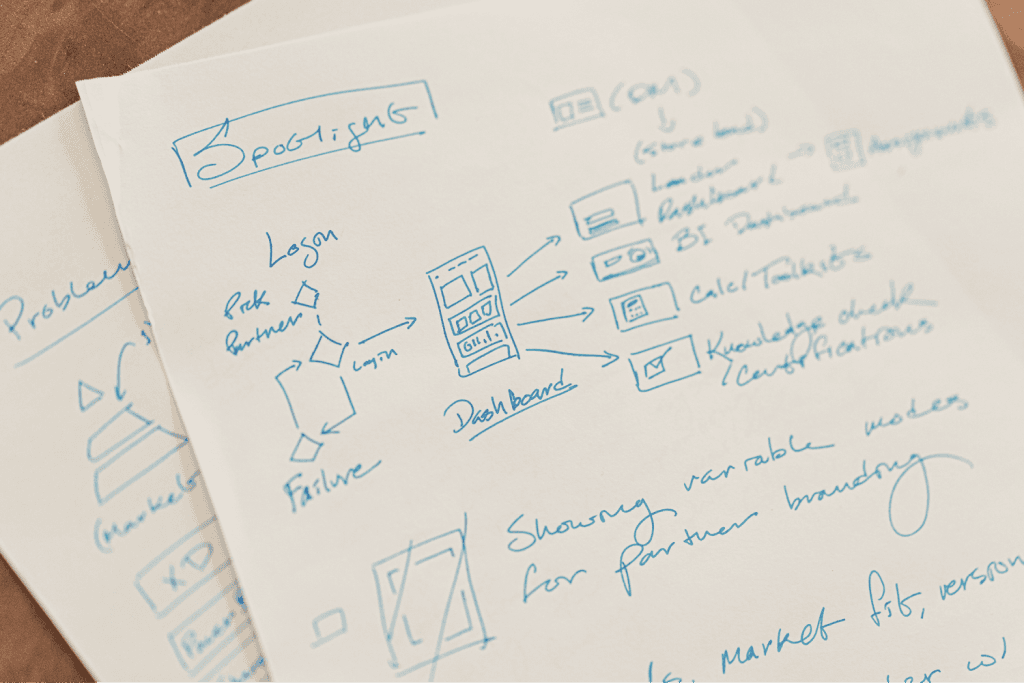 Spotlight
Logon
Pick
Partner
Login
Failure
Dashboard
(store level)
Leader
Dashboard
BI Dashboard
Calc/Toolkits
Knowledge check
/Certifications
Showing variable modes
for partner branding
market fit, version
w/
Problem
(Market
XD